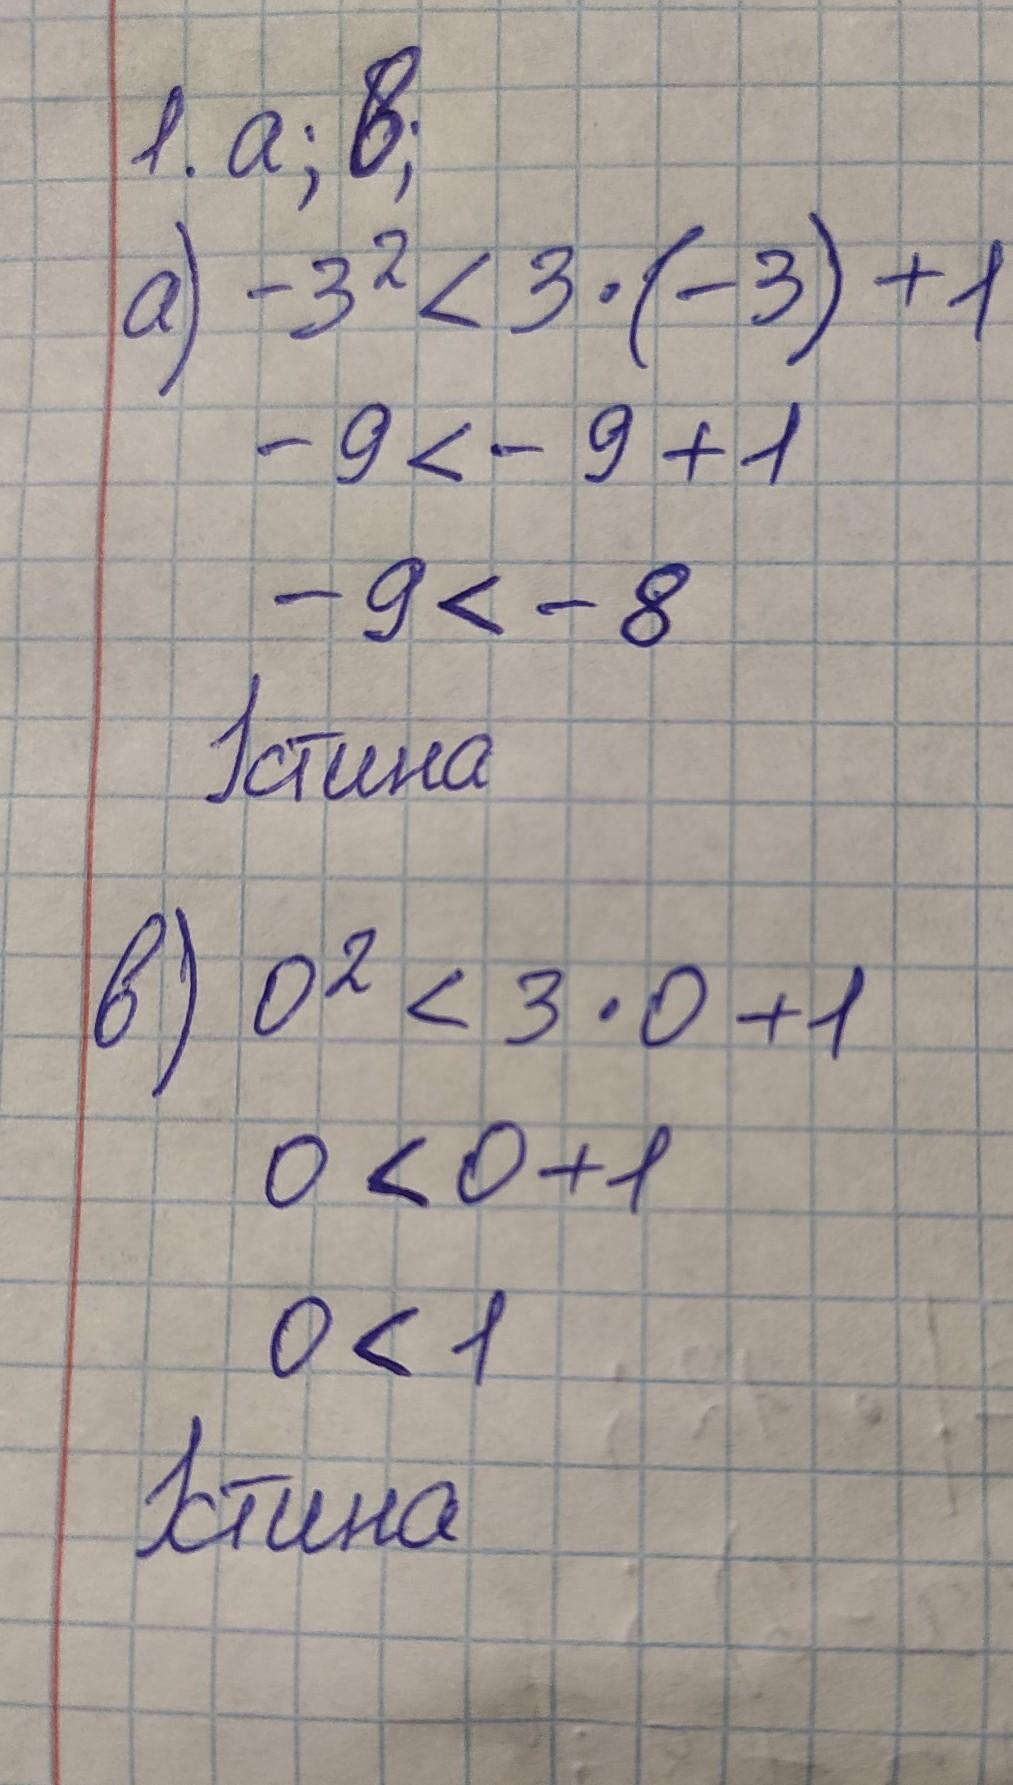 1. а; в;
а) -3² < 3·(-3) + 1
-9 < -9 + 1
-9 < -8
Істина
в) 0² < 3·0 + 1
0 < 0 + 1
0 < 1
Істина